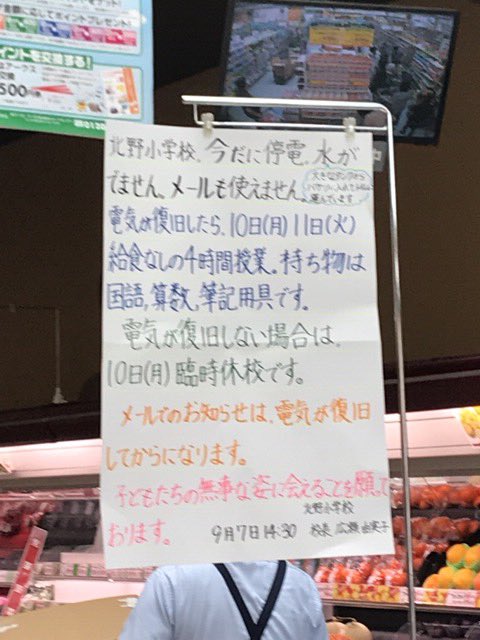 ポイントを交換する!
500
北野小学校、今だに停電。水が
でません。メールも使えません。
電気が復旧したら、10日(月)11日(火)
給食なしの4時間授業。持ち物は
国語,算数,筆記用具です。
電気が復旧しない場合は、
10日(月)臨時休校です。
メールでのお知らせは、電気が復旧
してからになります。
子どもたちの無事な姿に会えることを願って
おります。
北野小学校
9月7日14:30 校長 広瀬